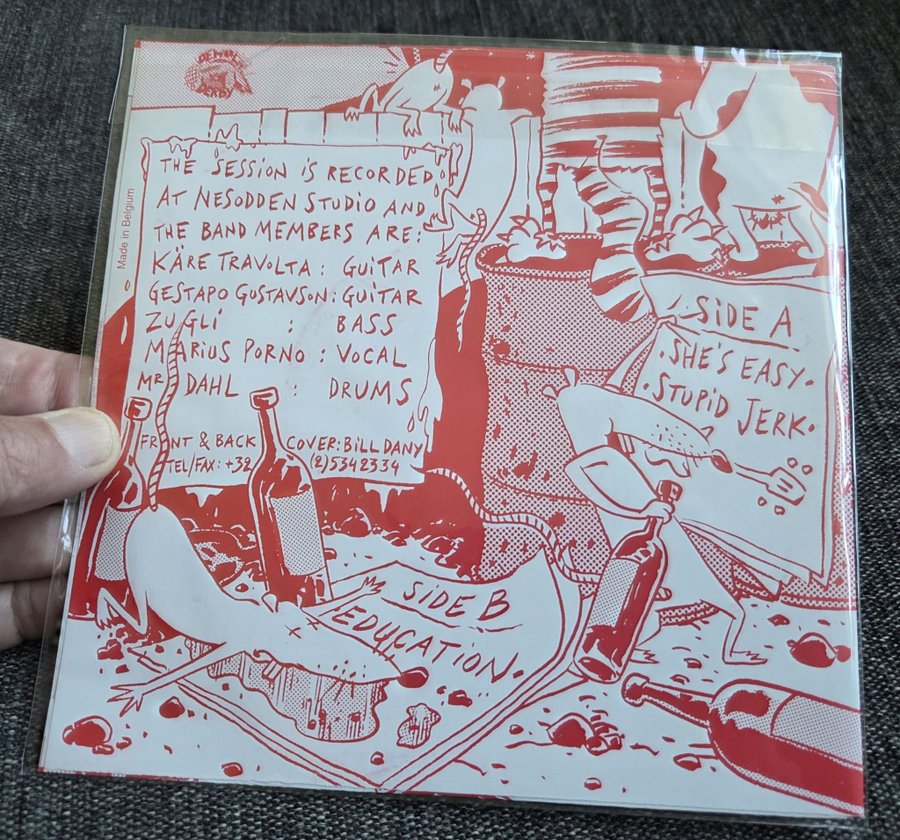 DEMOLITION DERBY
Made in Belgium
THE SESSION IS RECORDED
AT NESODDEN STUDIO AND
THE BAND MEMBERS ARE:
KÅRE TRAVOLTA : GUITAR
GESTAPO GUSTAVSON : GUITAR
ZUGLI : BASS
MARIUS PORNO : VOCAL
MR DAHL : DRUMS
FRONT & BACK COVER: BILL DANY
TEL/FAX: +32 (2) 5342334
SIDE A
.SHE'S EASY.
.STUPID JERK.
SIDE B
EDUCATION.